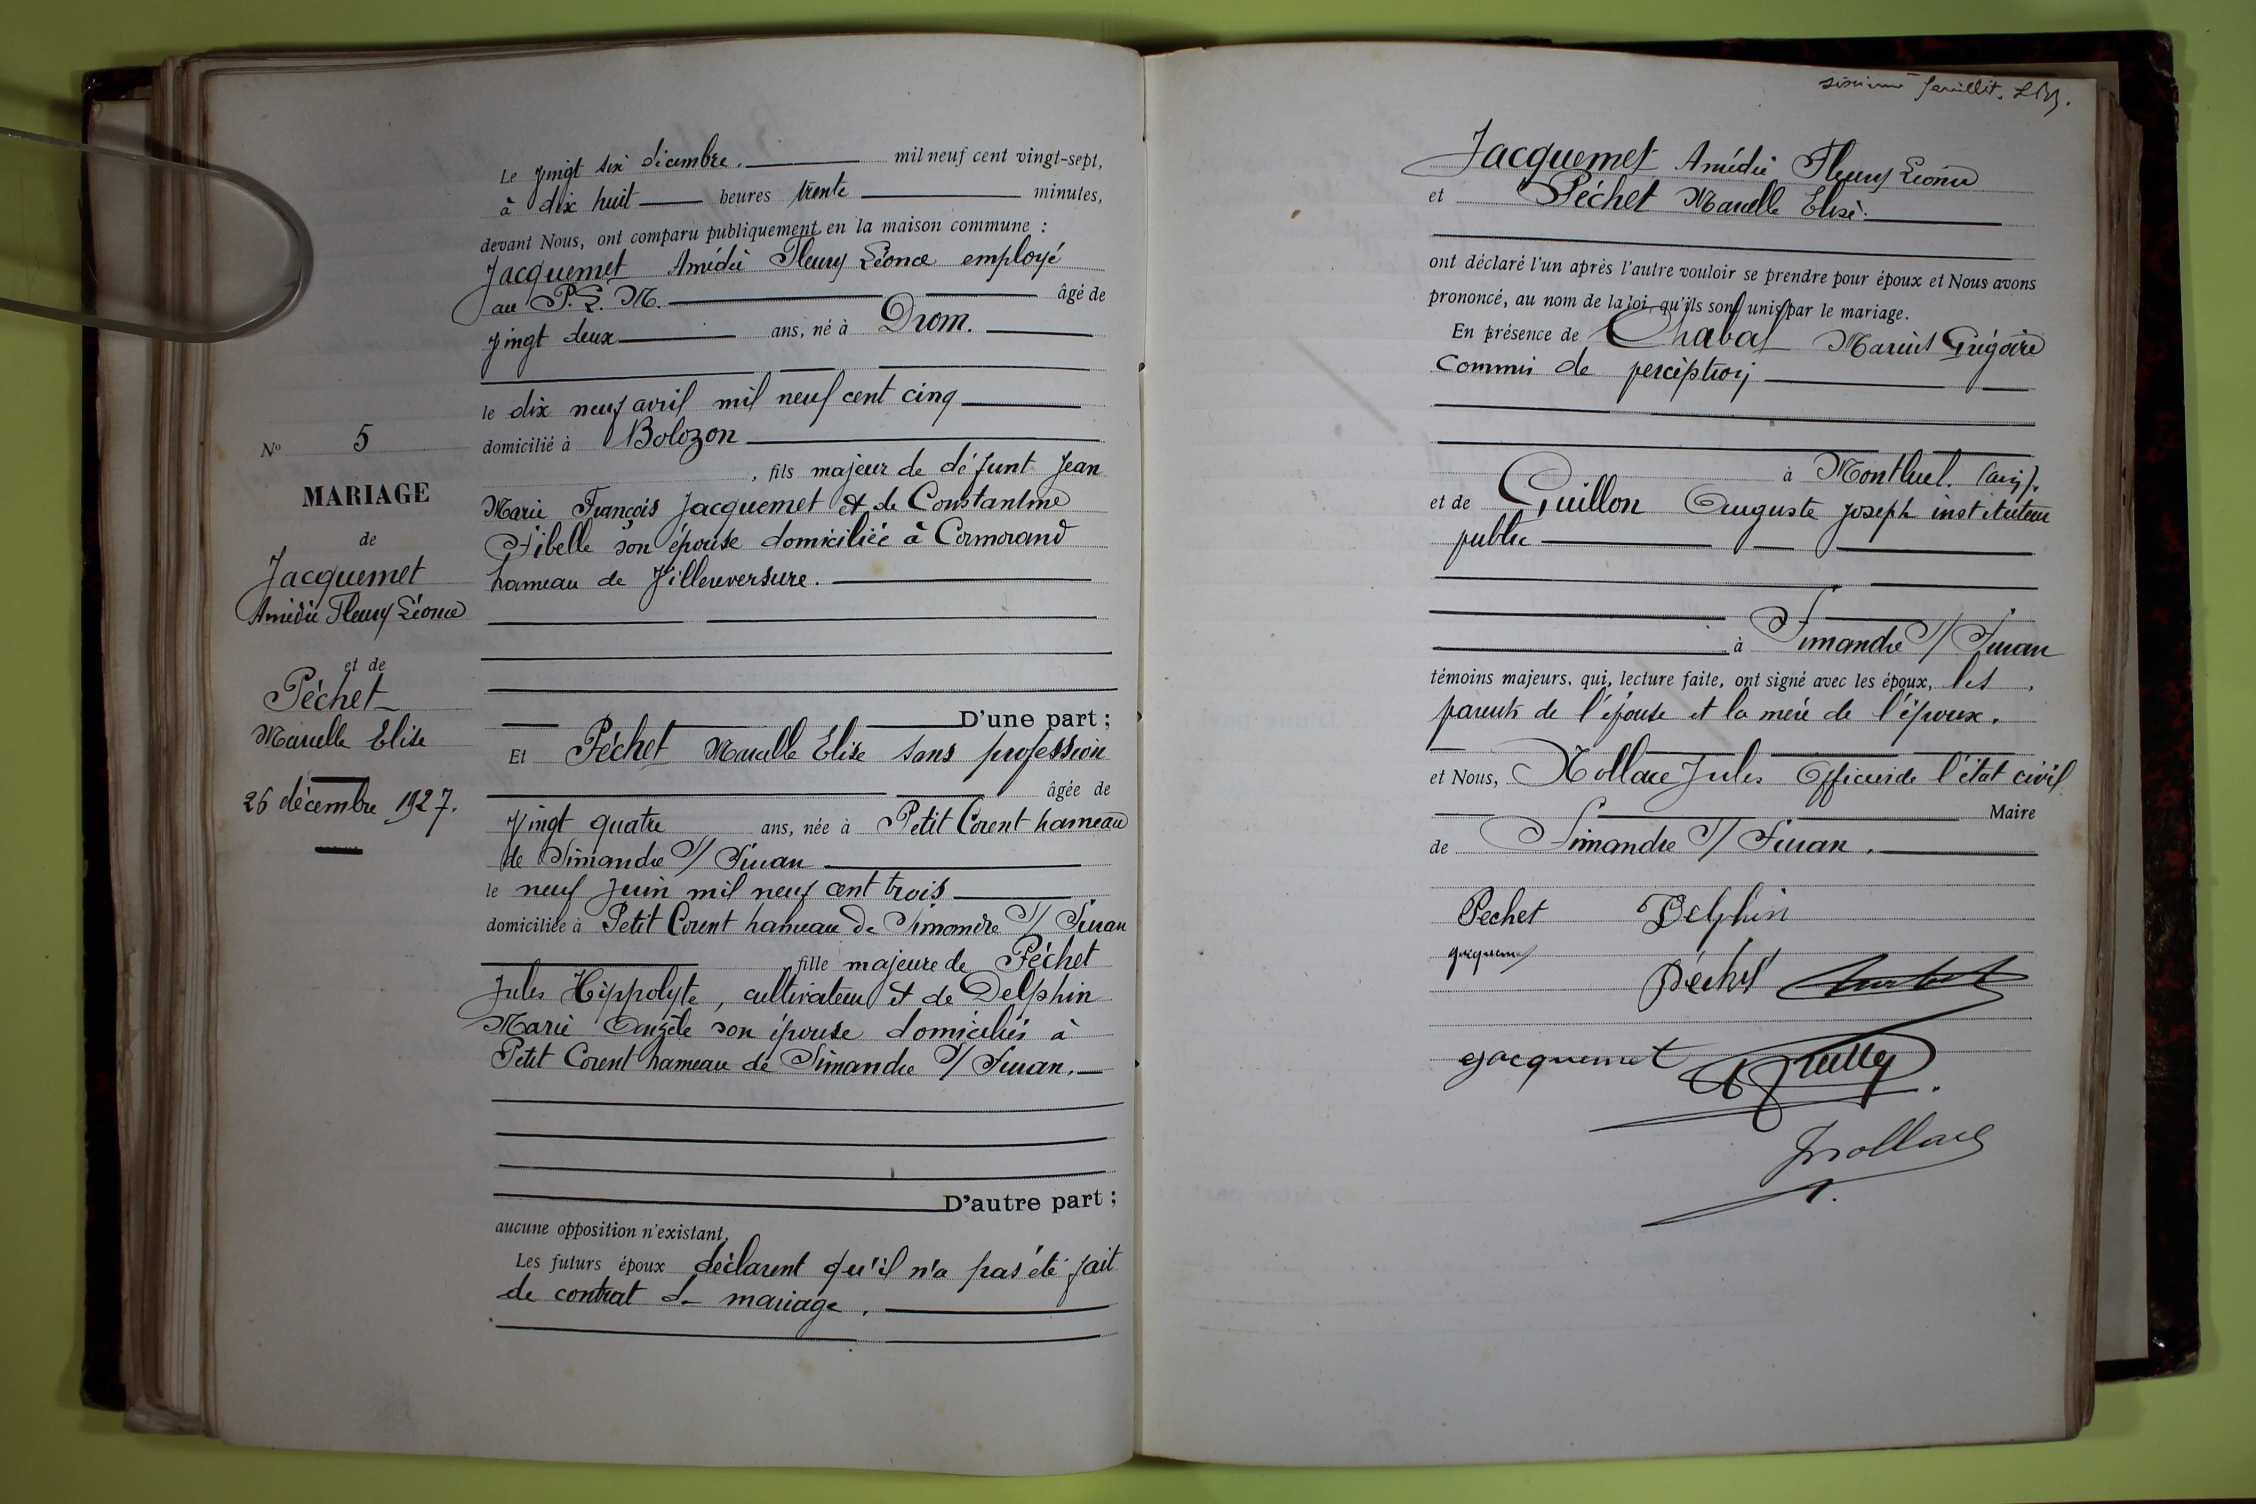 Le vingt six décembre. mil neuf cent vingt-sept,
à dix huit heures trente minutes,
devant Nous, ont comparu publiquement en la maison commune :
Jacquemet Amédée Fleury Léonce employé
au P. L. M. âgé de
vingt deux ans, né à Drom.
le dix neuf avril mil neuf cent cinq
domicilié à Bolozon
, fils majeur de défunt Jean
Marie François Jacquemet et de Constantine
Sibelle son épouse domiciliée à Cormorand
hameau de Villereversure.
D'une part ;
Et Péchet Marcelle Elise sans profession
âgée de
vingt quatre ans, née à Petit Corent hameau
de Simandre S/ Suran
le neuf juin mil neuf cent trois
domiciliée à Petit Corent hameau de Simandre S/ Suran
fille majeure de Péchet
Jules Hippolyte, cultivateur et de Delphin
Marie Angèle son épouse domiciliés à
Petit Corent hameau de Simandre S/ Suran.
D'autre part ;
aucune opposition n'existant.
Les futurs époux déclarent qu'il n'a pas été fait
de contrat de mariage.
No 5
MARIAGE
de
Jacquemet
Amédée Fleury Léonce
et de
Péchet
Marcelle Elise
26 décembre 1927.
feuillet.
Jacquemet Amédée Fleury Léonce
et Péchet Marcelle Elise.
ont déclaré l'un après l'autre vouloir se prendre pour époux et Nous avons
prononcé, au nom de la loi, qu'ils sont unis par le mariage.
En présence de Chabat Marius Grégoire
Commis de perception
à Montluel. (ain).
et de Guillon Auguste Joseph instituteur
public
à Simandre S/ Suran
témoins majeurs. qui, lecture faite, ont signé avec les époux, les
parents de l'épouse et la mère de l'époux.
et Nous, Nollace Jules Officier de l'état civil
Maire
de Simandre S/ Suran.
Pechet Delphin
Jacquemet
Péchet
Jacquemet
Nollace